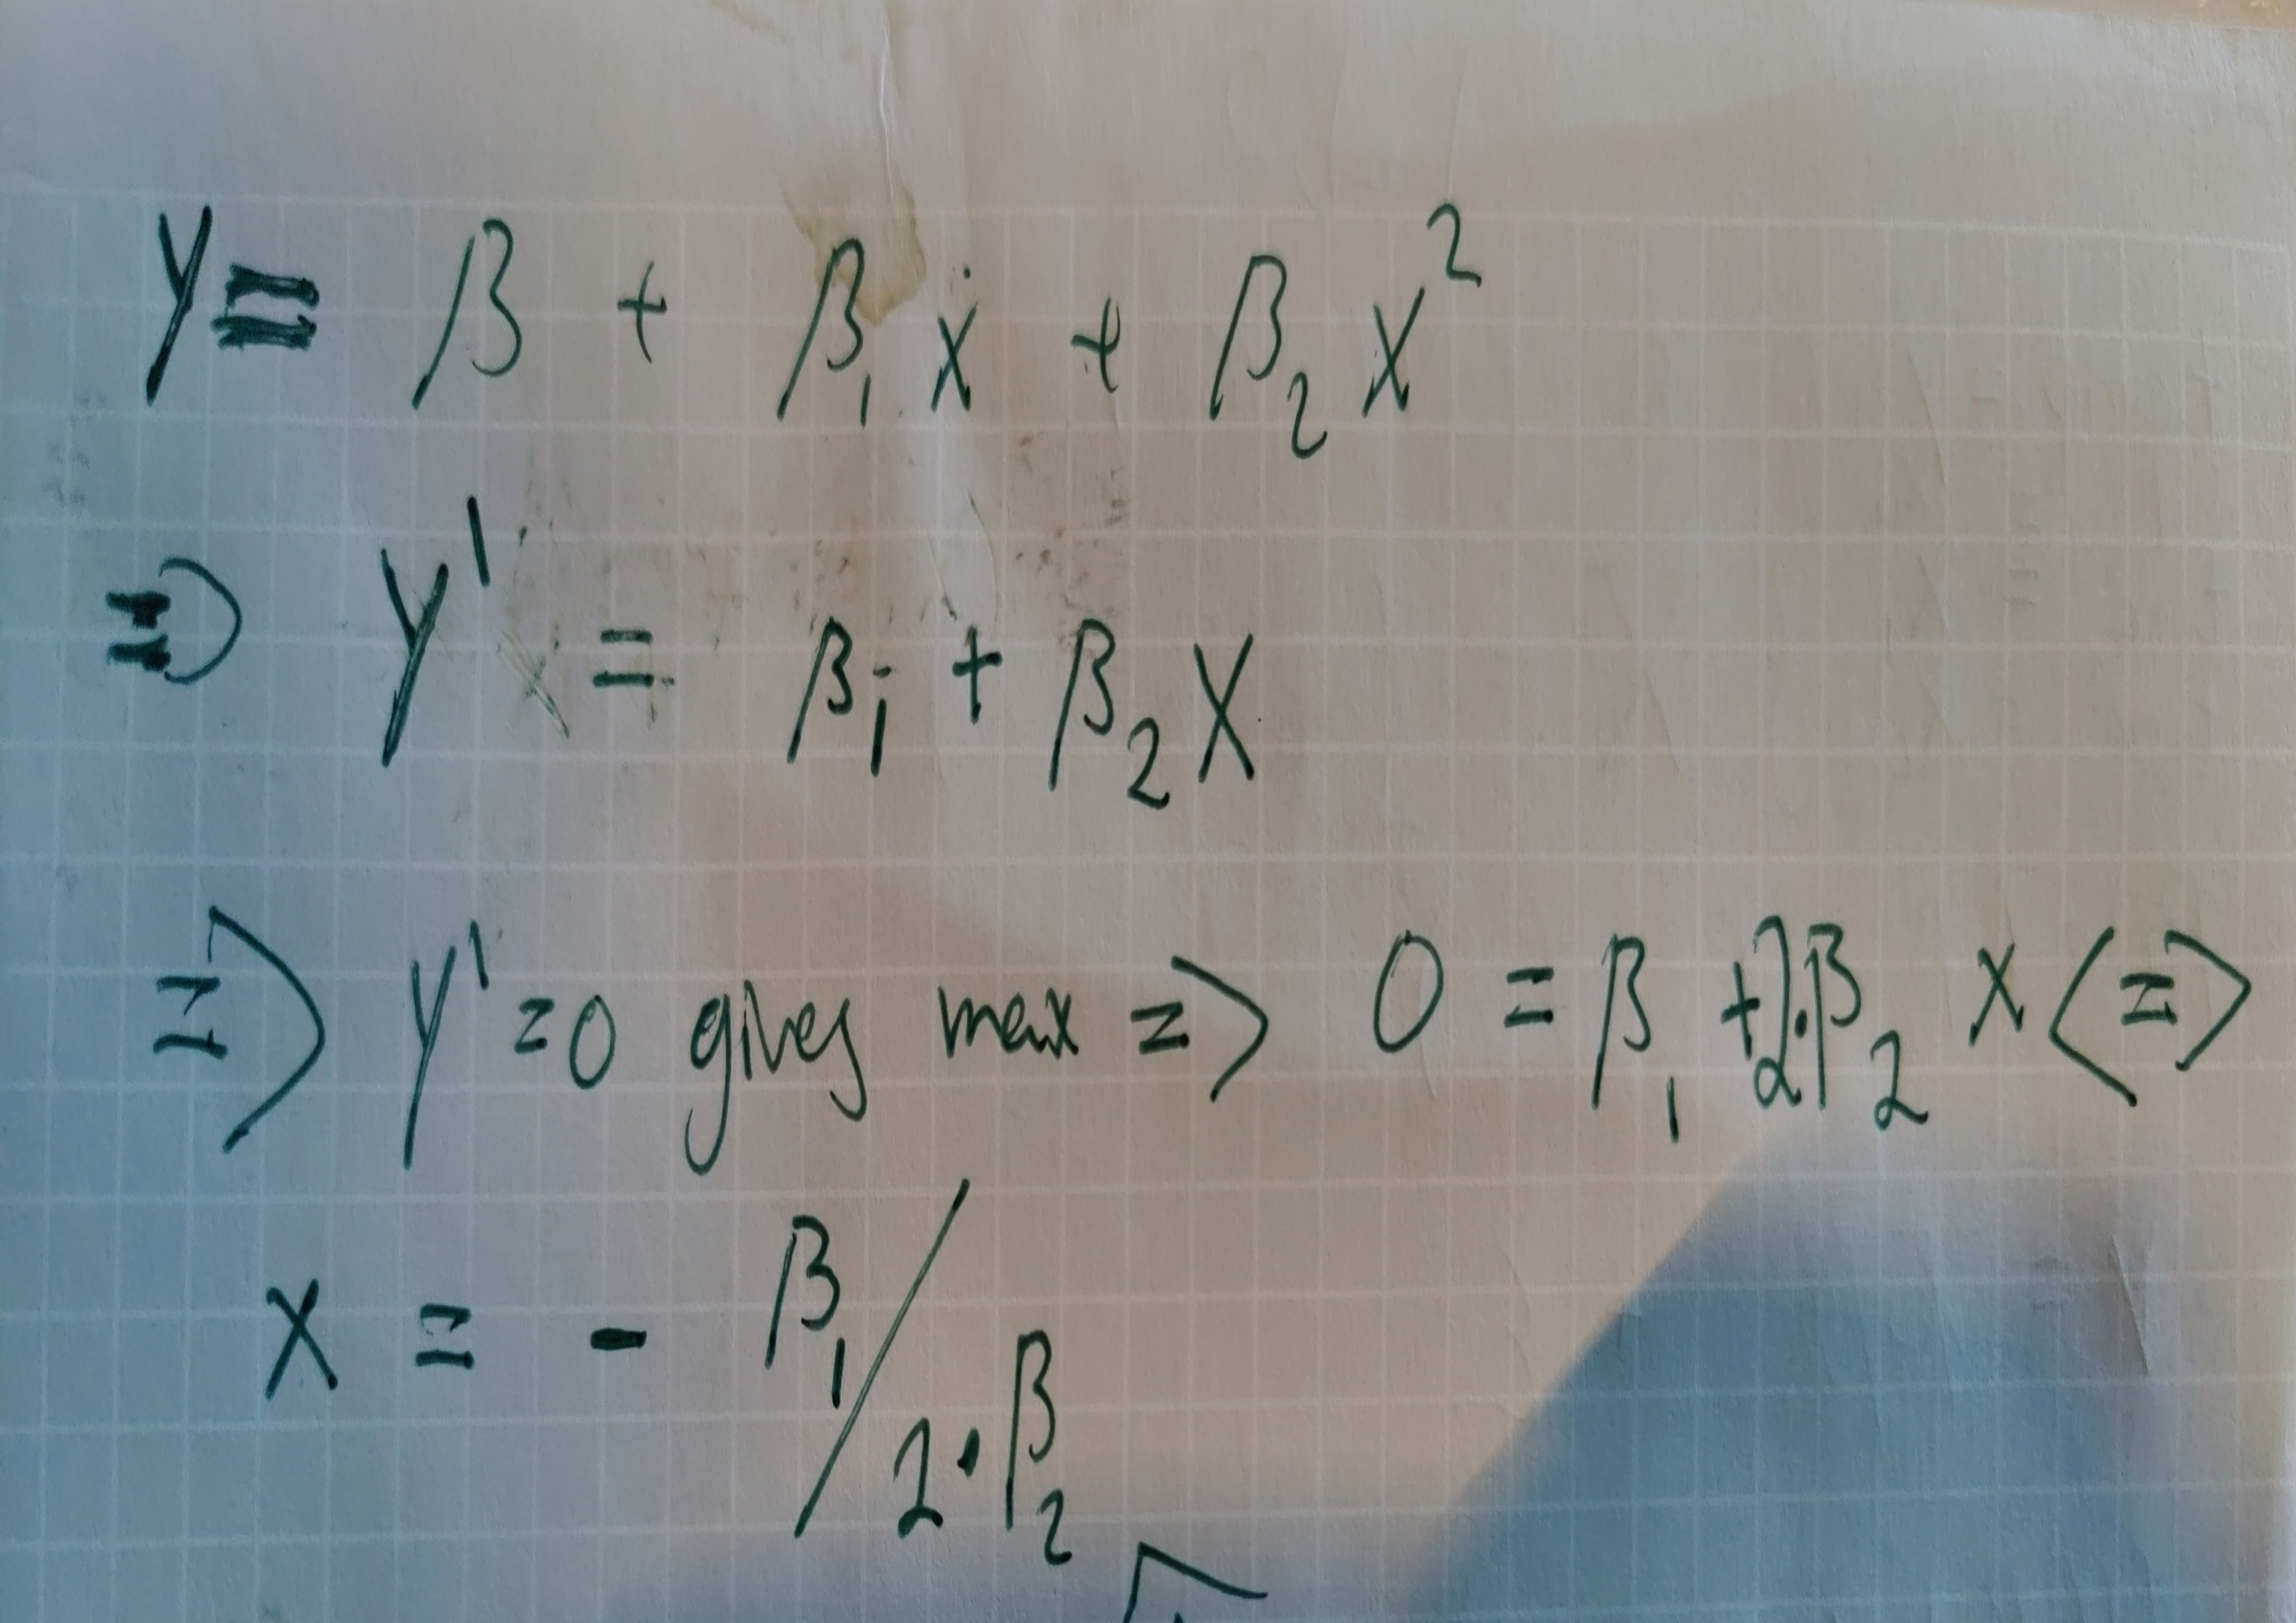 Y = β + β₁x + β₂x²
=> Y' = β₁ + β₂X
=> Y'=0 gives max => 0 = β₁ +2·β₂ x <=>
x = - β₁/2·β₂